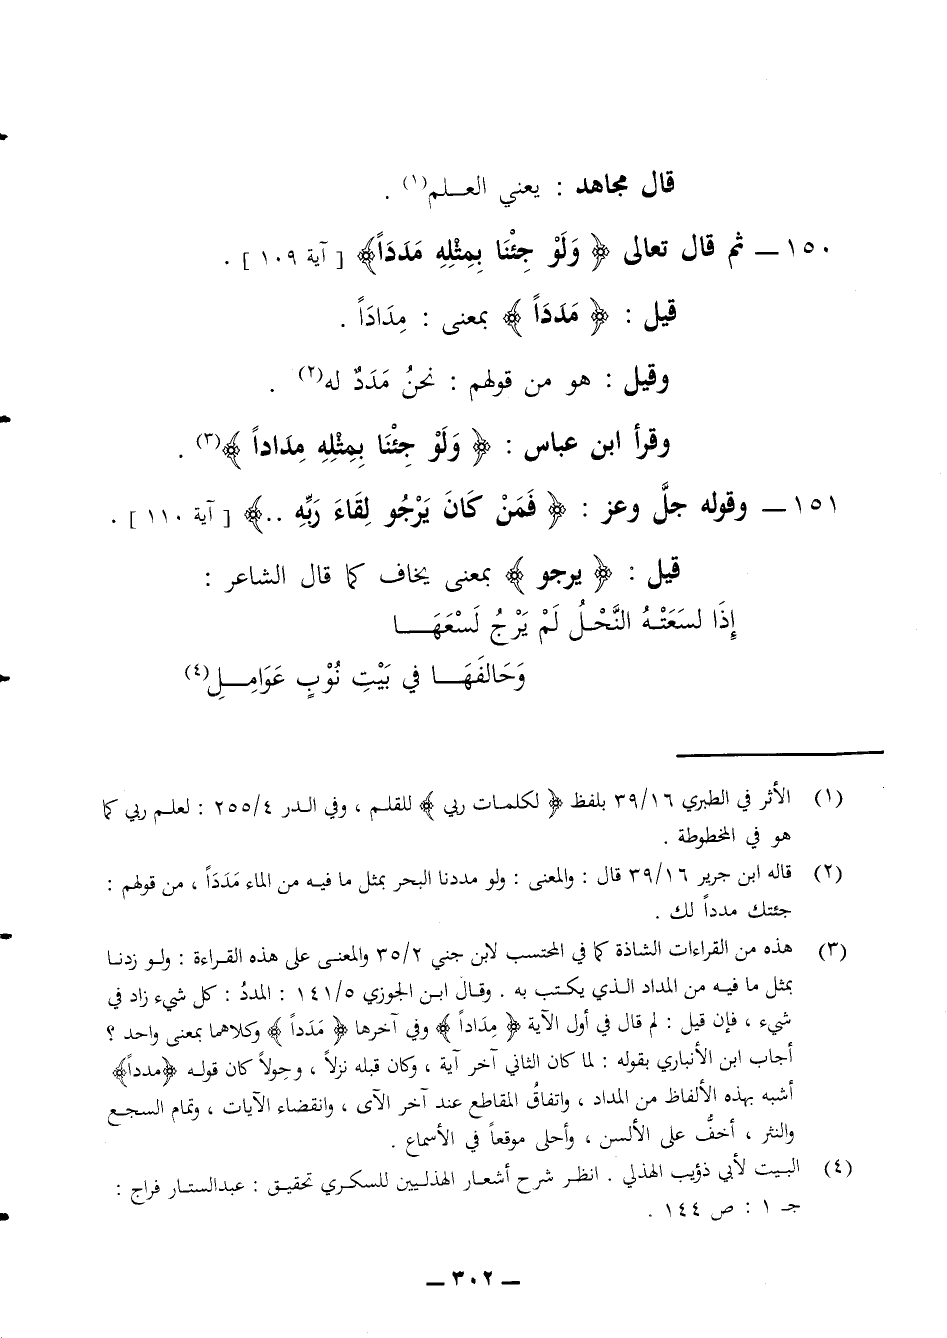 قال مجاهد : يعني العلم(١) .
١٥٠ ــ ثم قال تعالى ﴿ وَلَوْ جِئْنَا بِمِثْلِهِ مَدَدَاً﴾ [ آية ١٠٩ ] .
قيل : ﴿ مَدَدَاً ﴾ بمعنى : مِدَادَاً .
وقيل : هو من قولهم : نحنُ مَدَدٌ له(٢) .
وقرأ ابن عباس : ﴿ وَلَوْ جِئْنَا بِمِثْلِهِ مِدَاداً ﴾(٣) .
١٥١ ــ وقوله جلَّ وعز : ﴿ فَمَنْ كَانَ يَرْجُو لِقَاءَ رَبِّهِ ..﴾ [ آية ١١٠ ] .
قيل : ﴿ يرجو ﴾ بمعنى يخاف كما قال الشاعر :
إِذَا لسَعَتْهُ النَّحْلُ لَمْ يَرْجُ لَسْعَهَا
وَحَالفَهَا في بَيْتِ نُوْبٍ عَوَامِلِ(٤)
(١) الأثر في الطبري ٣٩/١٦ بلفظ ﴿ لكلمات ربي ﴾ للقلم ، وفي الدر ٢٥٥/٤ : لعلم ربي كما
هو في المخطوطة .
(٢) قاله ابن جرير ٣٩/١٦ قال : والمعنى : ولو مددنا البحر بمثل ما فيه من الماء مَدَدَاً ، من قولهم :
جئتك مدداً لك .
(٣) هذه من القراءات الشاذة كما في المحتسب لابن جني ٣٥/٢ والمعنى على هذه القراءة : ولو زدنا
بمثل ما فيه من المداد الذي يكتب به . وقال ابن الجوزي ١٤١/٥ : المددُ : كل شيء زاد في
شيء ، فإن قيل : لم قال في أول الآية ﴿ مِدَاداً ﴾ وفي آخرها ﴿ مَدَداً ﴾ وكلاهما بمعنى واحد ؟
أجاب ابن الأنباري بقوله : لما كان الثاني آخر آية ، وكان قبله نزلاً ، وحِولاً كان قوله ﴿مدداً﴾
أشبه بهذه الألفاظ من المداد ، واتفاقُ المقاطع عند آخر الآى ، وانقضاء الآيات ، وتمام السجع
والنثر ، أخفُّ على الألسن ، وأحلى موقعاً في الأسماع .
(٤) البيت لأبي ذؤيب الهذلي . انظر شرح أشعار الهذليين للسكري تحقيق : عبدالستار فراج :
جـ ١ : ص ١٤٤ .
ــ ٣٠٢ ــ